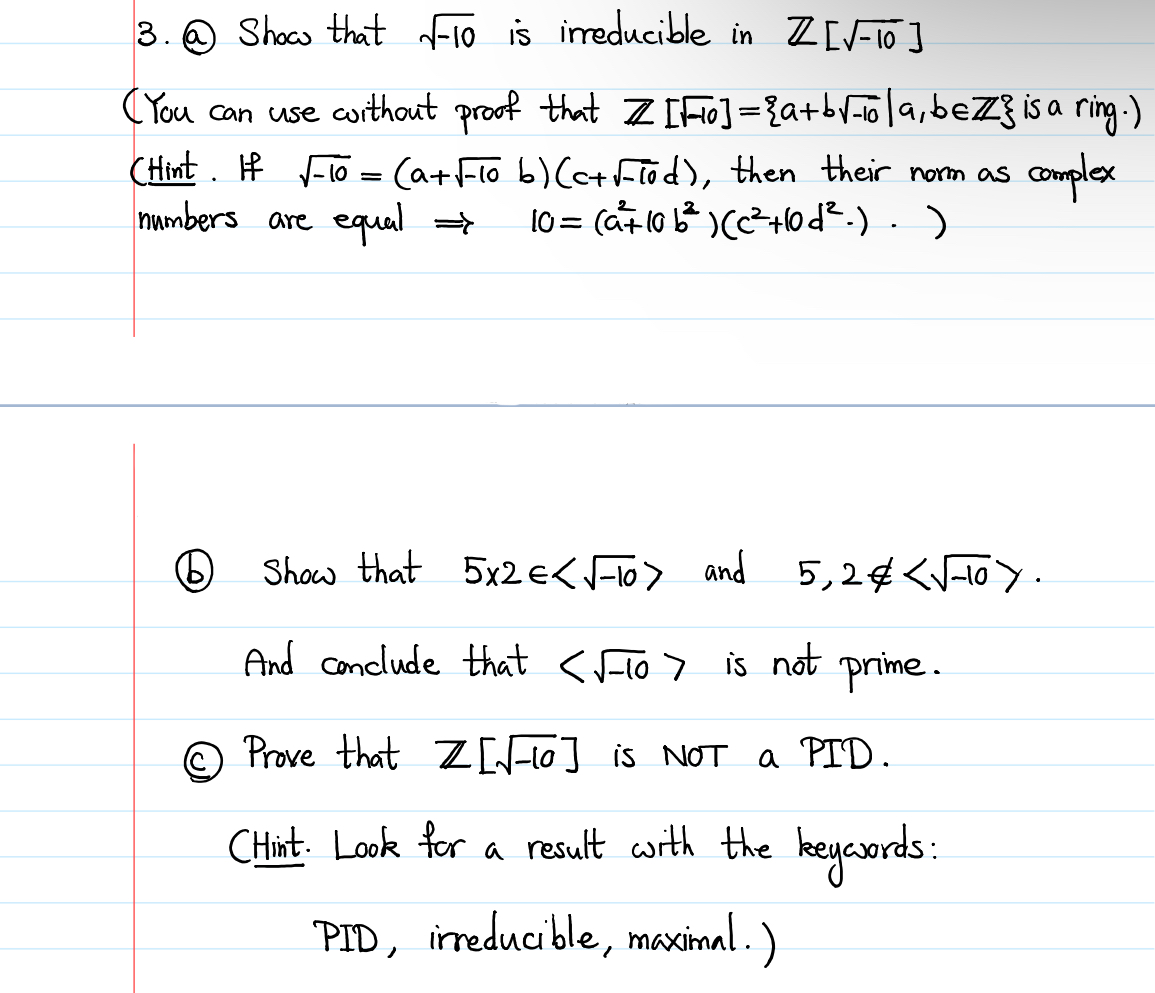 3. ⓐ Show that √-10 is irreducible in ℤ[√-10]
(You can use without proof that ℤ[√-10]={a+b√-10|a,b∈ℤ} is a ring.)
(Hint. If √-10 = (a+√-10 b)(c+√-10 d), then their norm as complex
numbers are equal ⟹ 10 = (a²+10b²)(c²+10d².) . )
ⓑ Show that 5x2∈<√-10> and 5,2∉<√-10>.
And conclude that <√-10> is not prime.
ⓒ Prove that ℤ[√-10] is NOT a PID.
(Hint. Look for a result with the keywords:
PID, irreducible, maximal.)